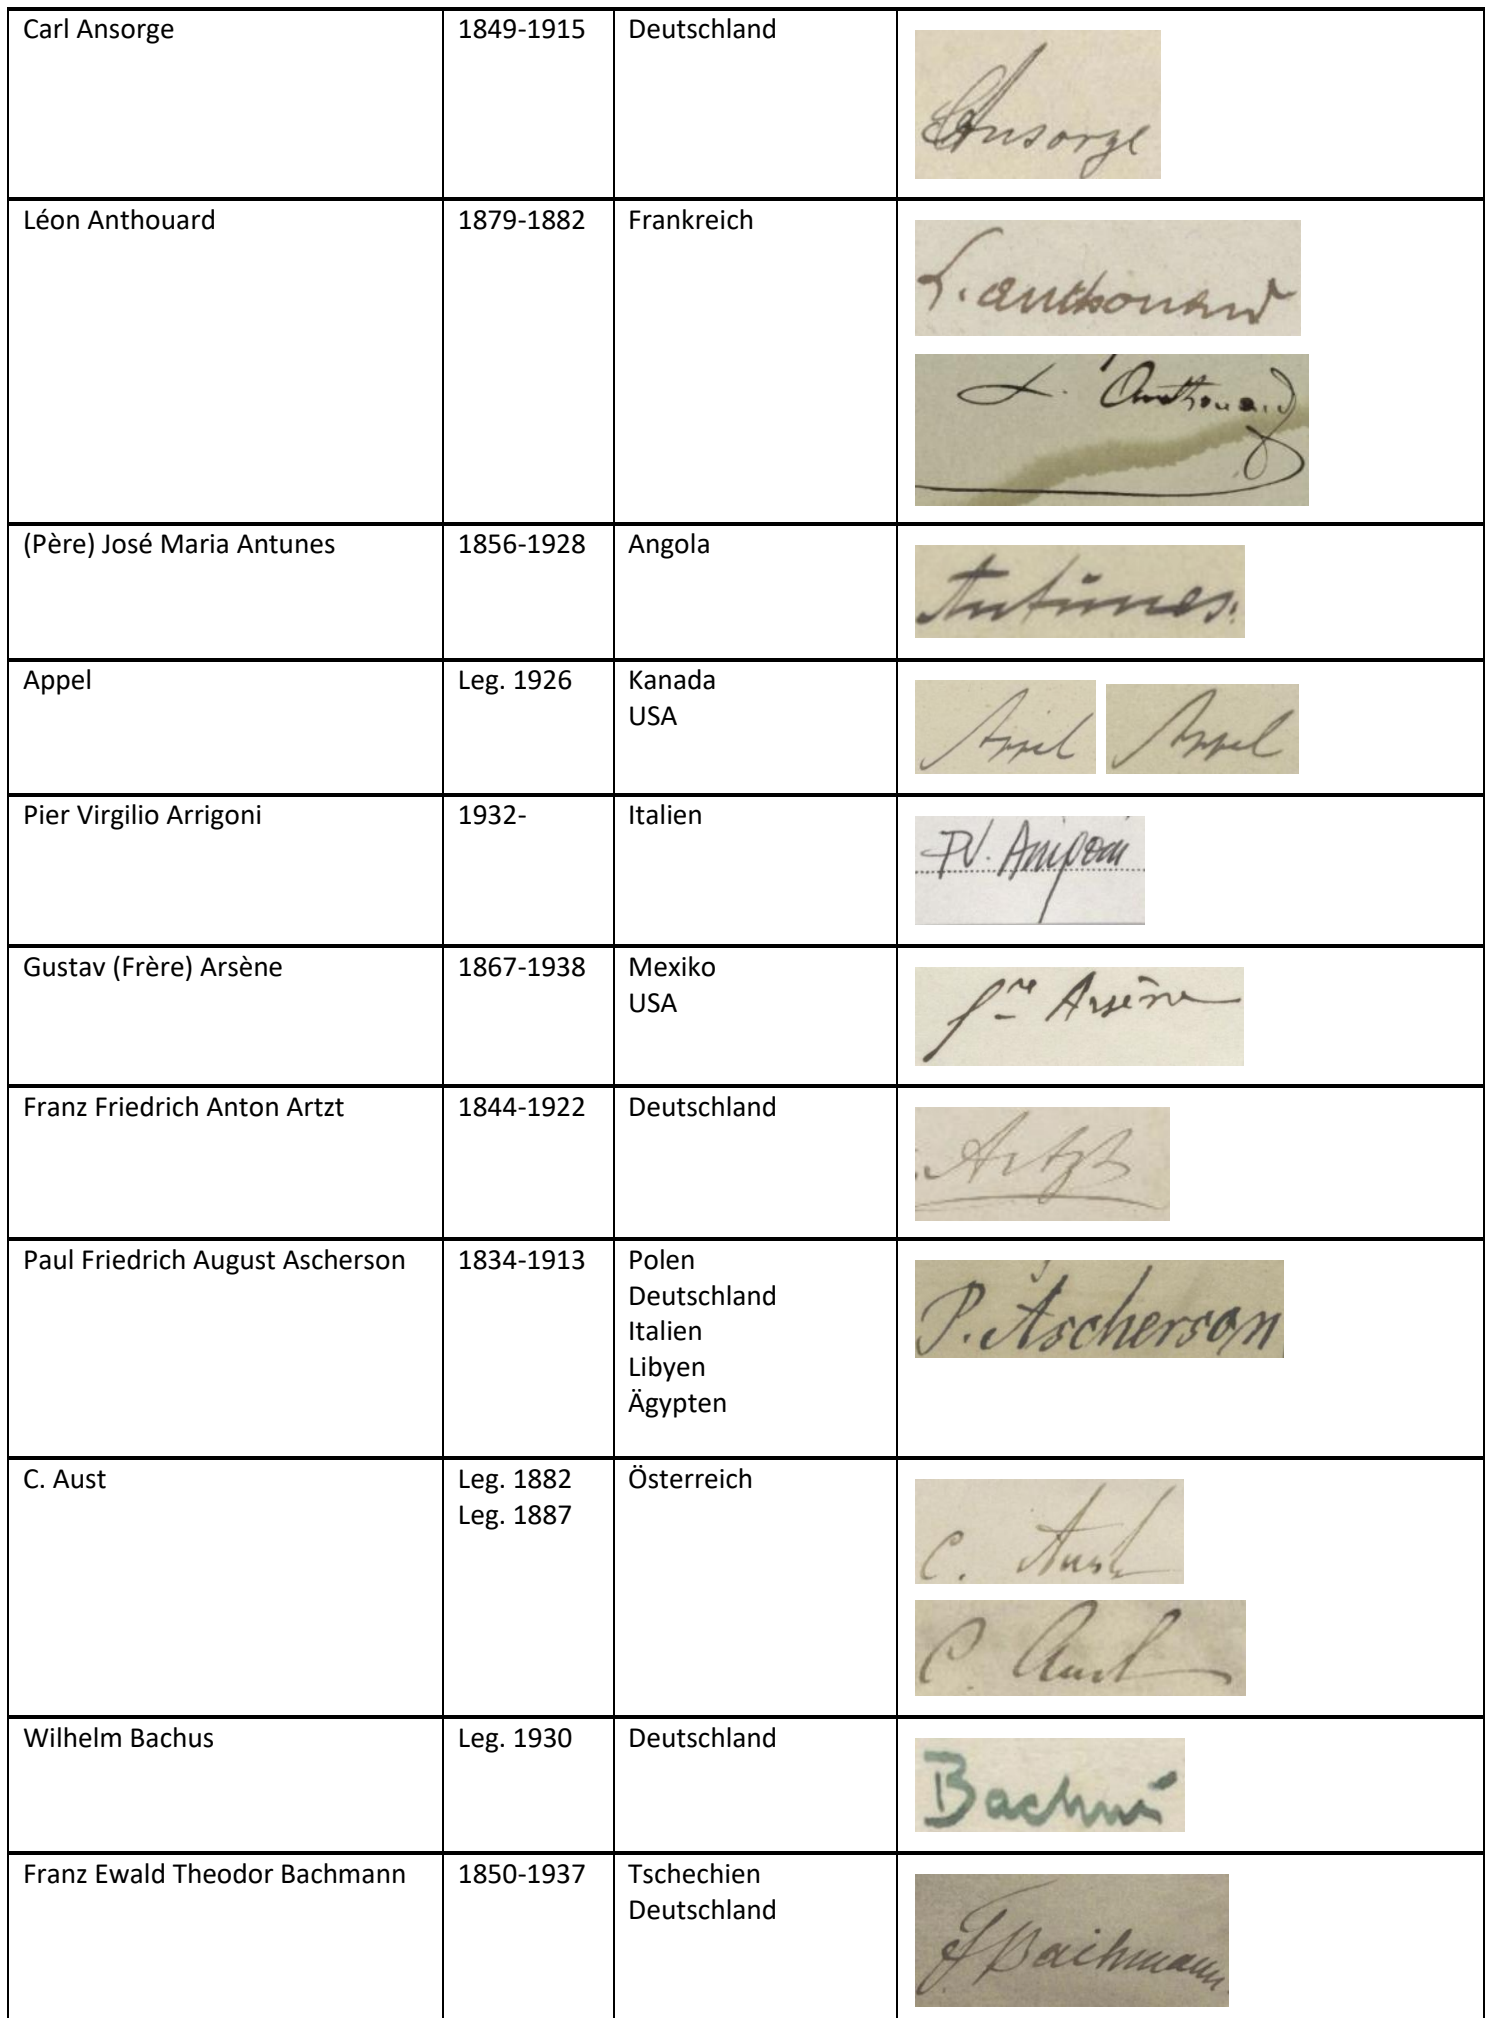 Carl Ansorge 1849-1915 Deutschland
CAnsorge
Léon Anthouard 1879-1882 Frankreich
L. anthouard
L. Anthouard
(Père) José Maria Antunes 1856-1928 Angola
Antunes.
Appel Leg. 1926 Kanada
USA
Appel Appel
Pier Virgilio Arrigoni 1932- Italien
P.V. Arrigoni
Gustav (Frère) Arsène 1867-1938 Mexiko
USA
fre Arsène
Franz Friedrich Anton Artzt 1844-1922 Deutschland
Artzt
Paul Friedrich August Ascherson 1834-1913 Polen
Deutschland
Italien
Libyen
Ägypten
P. Ascherson
C. Aust Leg. 1882 Österreich
Leg. 1887
C. Aust
C. Aust
Wilhelm Bachus Leg. 1930 Deutschland
Bachus
Franz Ewald Theodor Bachmann 1850-1937 Tschechien
Deutschland
F Bachmann.